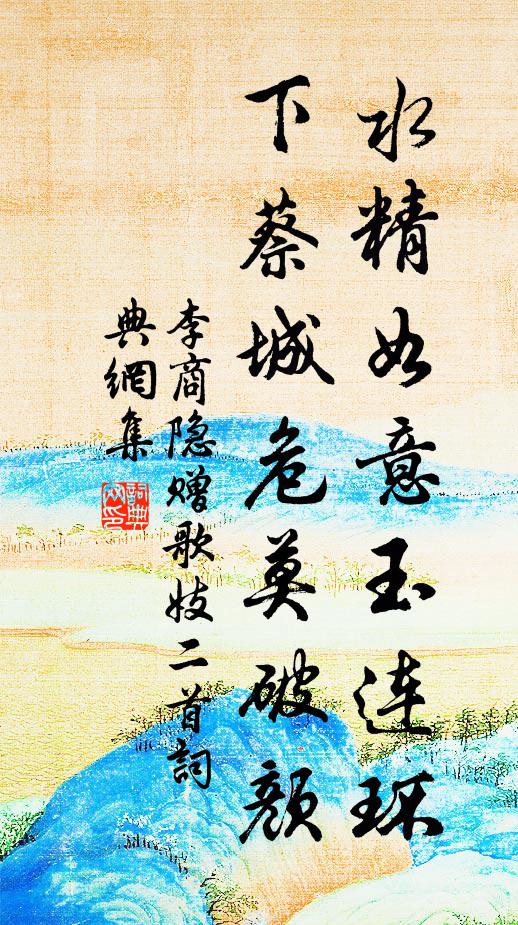 水精如意玉连环
下蔡城危莫破颜
李商隐赠歌妓二首詞
典網集
詞典